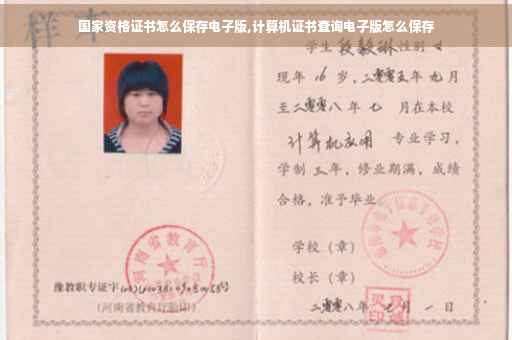 国家资格证书怎么保存电子版,计算机证书查询电子版怎么保存
样本
学生段毅琳性别女
现年16岁,二零零五年九月
至二零零八年七月在本校
计算机应用 专业学习,
学制三年,修业期满,成绩
合格,准予毕业
学校(章)
校长(章)
二零零八年七月一日
豫教职专证字
(河南省教育厅验印)
河南省教育厅